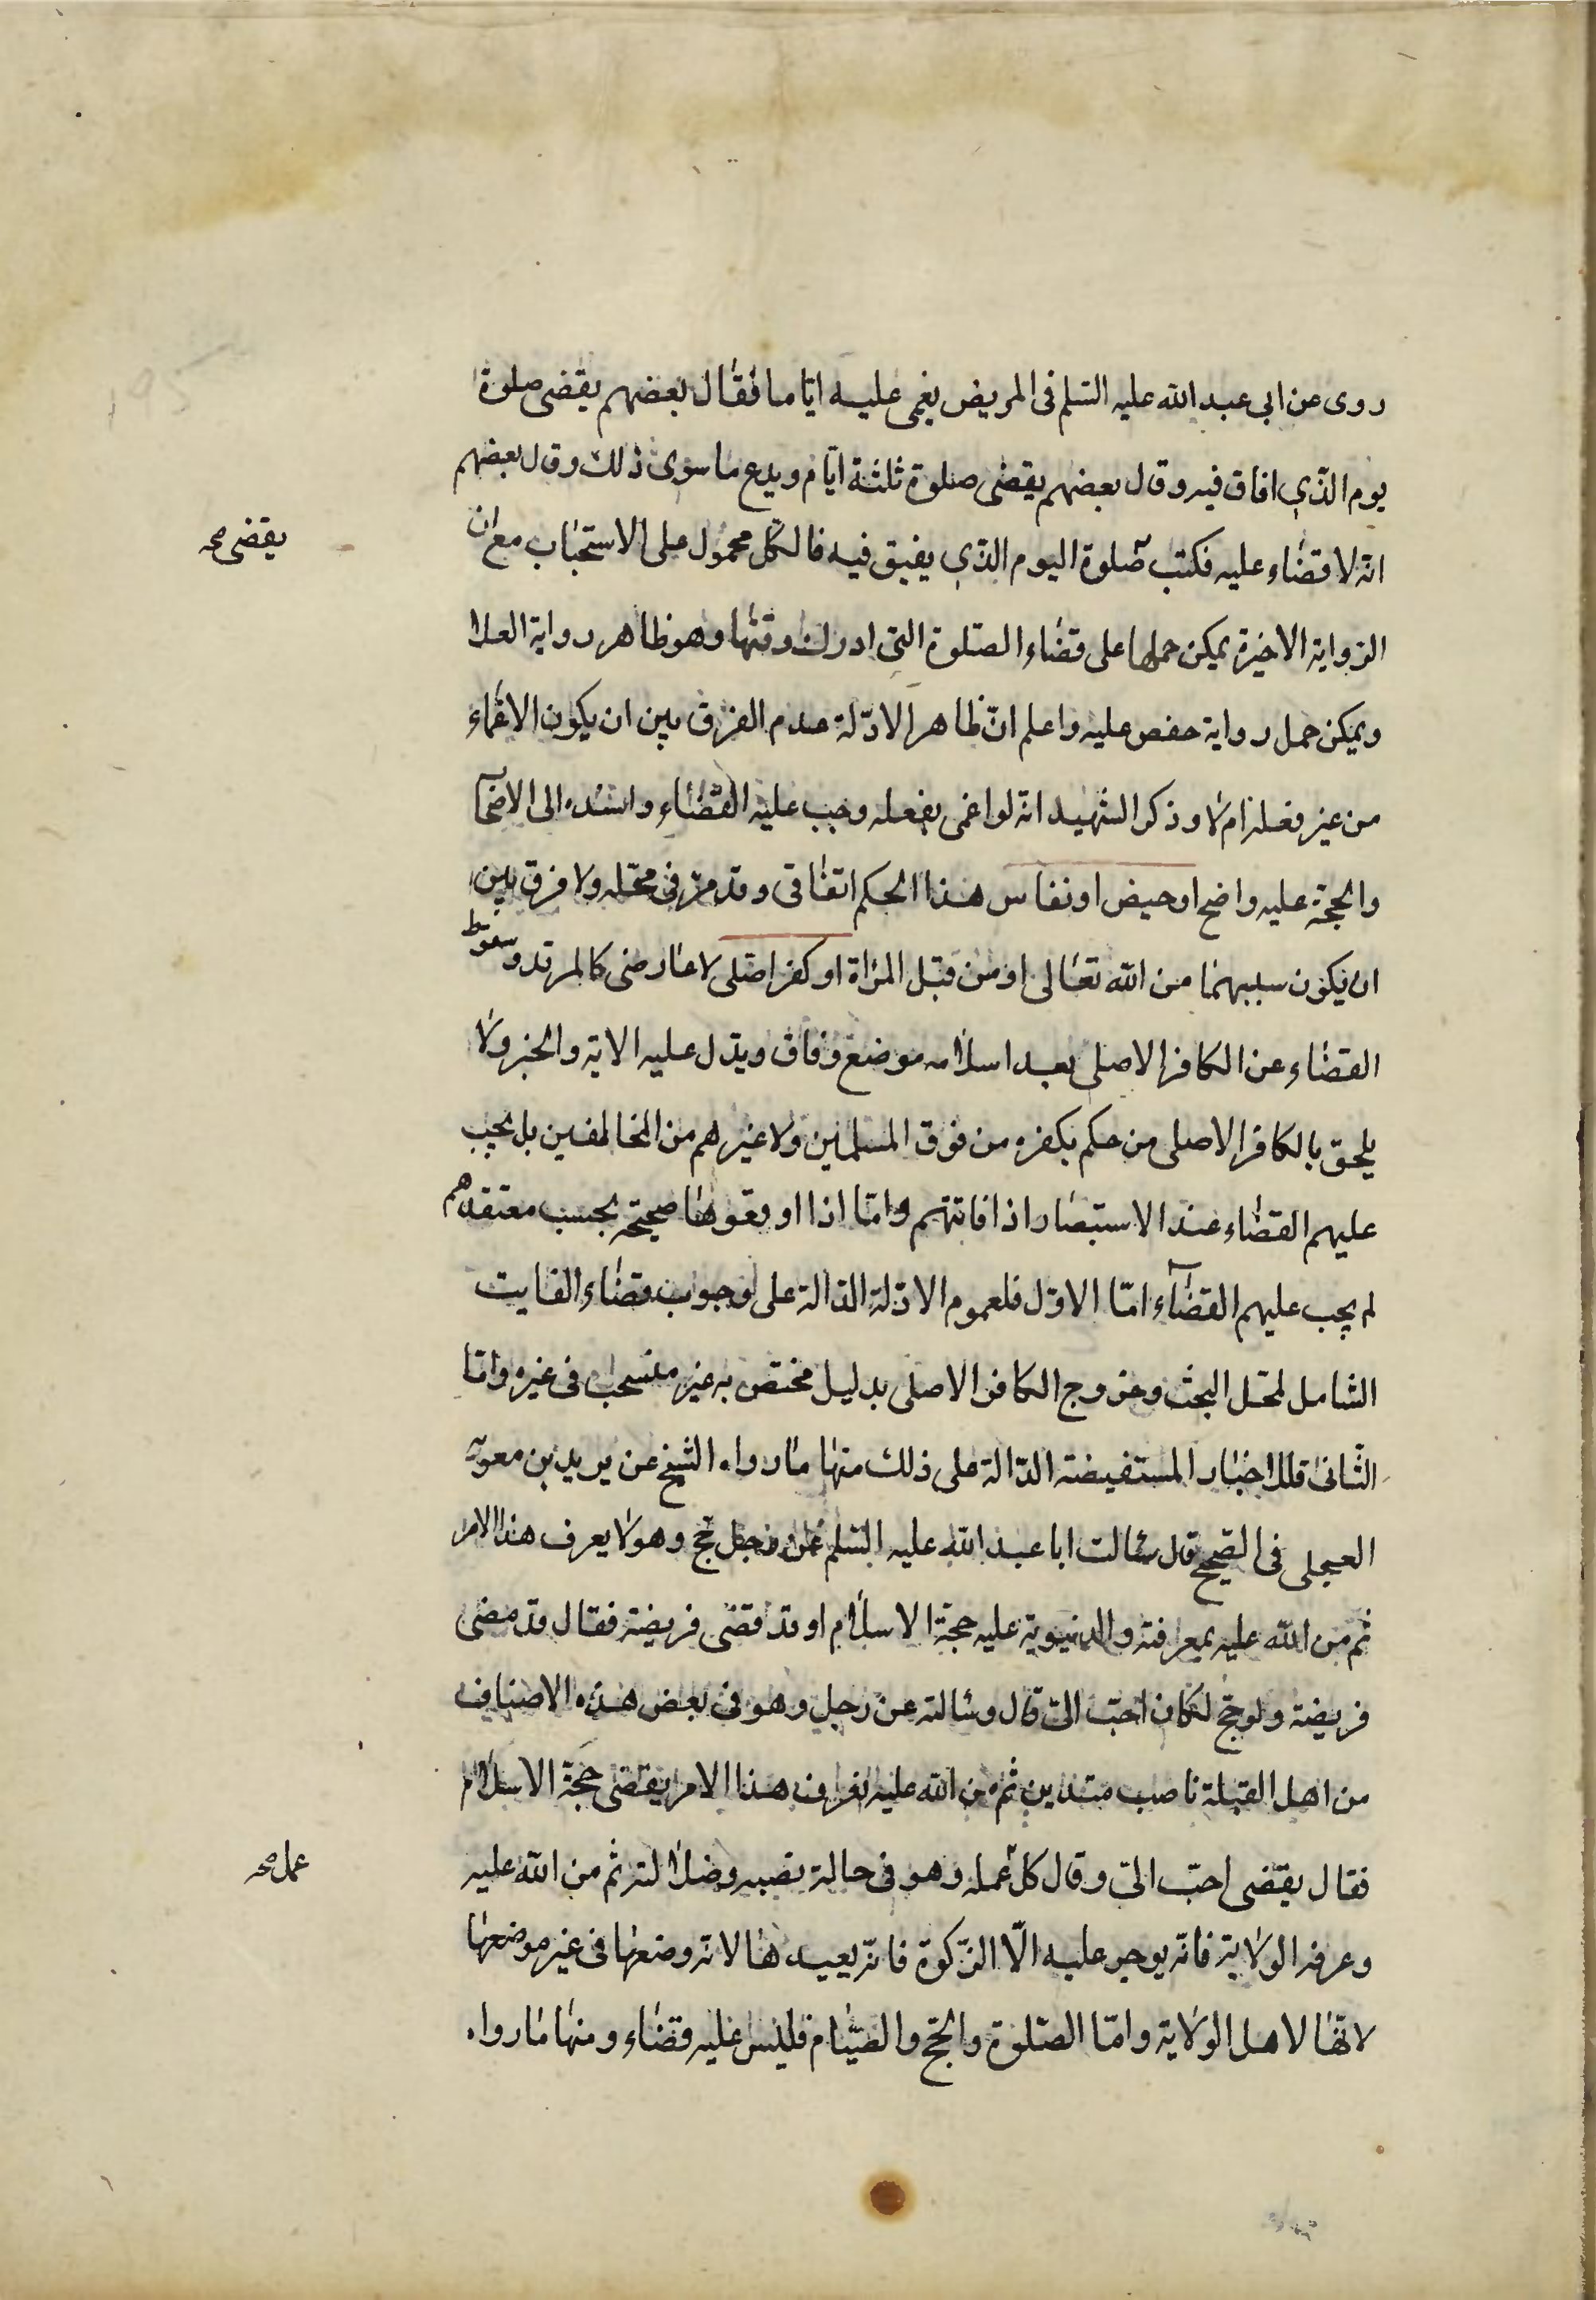 روى عن ابى عبد الله عليه السّلم فى المريض يغمى عليه ايّاما فقال بعضهم يقضى صلوة
يوم الذّي افاق فيه وقال بعضهم يقضى صلوة ثلثة ايّام ويدع ما سوى ذلك وقال بعضهم
انّه لا قضاء عليه فكتب صلوة اليوم الذّي يفيق فيه فالكلّ محمول على الاستحباب مع ان
يقضى صح
الرّواية الاخيرة يمكن حملها على قضاء الصّلوة التى ادرك وقتها وهو ظاهر رواية العلا
ويمكن حمل رواية حفص عليه واعلم انّ ظاهر الادّلة عدم الفرق بين ان يكون الاغماء
من غير فعله ام لا وذكر الشهيد انّه لو اغمى بفعله وجب عليه القضاء واسنده الى الاصحاب
والحجّة عليه واضح او حيض او نفاس هذا الحكم اتفاقى وقد مرّ فى محّله ولا فرق بين
ان يكون سببهما من الله تعالى او من قبل المراة او كفر اصلى لا عارضى كالمرتد وسقوط
القضاء عن الكافر الاصلى بعد اسلامه موضع وفاق ويدّل عليه الاية والخبر ولا
يلحق بالكافر الاصلى من حكم بكفره من فرق المسلمين ولا غيرهم من المخالفين بل يجب
عليهم القضاء عند الاستبصار اذا فاتتهم وامّا اذا اوقعوها صحيحة بحسب معتقدهم
لم يجب عليهم القضاء امّا الاوّل فلعموم الادّلة الدّالة على وجوب قضاء الفايت
الشامل لمحّل البحث وخروج الكافر الاصلى بدليل مختصّ به غير منسحب فى غيره وامّا
الثانى فللاخبار المستفيضة الدّالة على ذلك منها ما رواه الشيخ عن بريد بن معوية
العجلى فى الصّحيح قال سئالت ابا عبد الله عليه السّلم عن رجل حج وهو لا يعرف هذا الامر
ثم من الله عليه بمعرفته والدنيوية عليه حجة الاسلام او قد قضى فريضة فقال قد قضى
فريضة ولو حجّ لكان احبّ الىّ قال وسئالته عن رجل وهو فى بعض هذه الاصناف
من اهل القبلة ناصب متديّن ثم من الله عليه فعرف هذا الامر يقضى حجة الاسلام
فقال يقضى احبّ الىّ وقال كل عمله وهو فى حالة نصبه وضلالته ثم من الله عليه
عمل صح
وعرفه الولاية فانّه يوجر عليه الّا الزّكوة فانّه يعيدها لانه وضعها فى غير موضعها
لانّها لاهل الولاية وامّا الصّلوة والحجّ والصّيام فليس عليه قضاء ومنها ما رواه